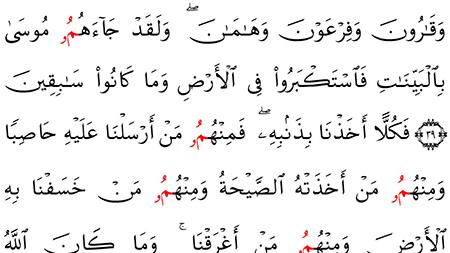 وَقَٰرُونَ وَفِرْعَوْنَ وَهَٰمَٰنَ ۖ وَلَقَدْ جَآءَهُمُۥ مُوسَىٰ
بِالْبَيِّنَٰتِ فَاسْتَكْبَرُوا۟ فِى الْأَرْضِ وَمَا كَانُوا۟ سَٰبِقِينَ
﴿٣٩﴾ فَكُلًّا أَخَذْنَا بِذَنۢبِهِۦ ۖ فَمِنْهُمُۥ مَنْ أَرْسَلْنَا عَلَيْهِ حَاصِبًا
وَمِنْهُمُۥ مَنْ أَخَذَتْهُ الصَّيْحَةُ وَمِنْهُمُۥ مَنْ خَسَفْنَا بِهِ
الْأَرْضَ وَمِنْهُمُۥ مَنْ أَغْرَقْنَا ۚ وَمَا كَانَ اللَّهُ